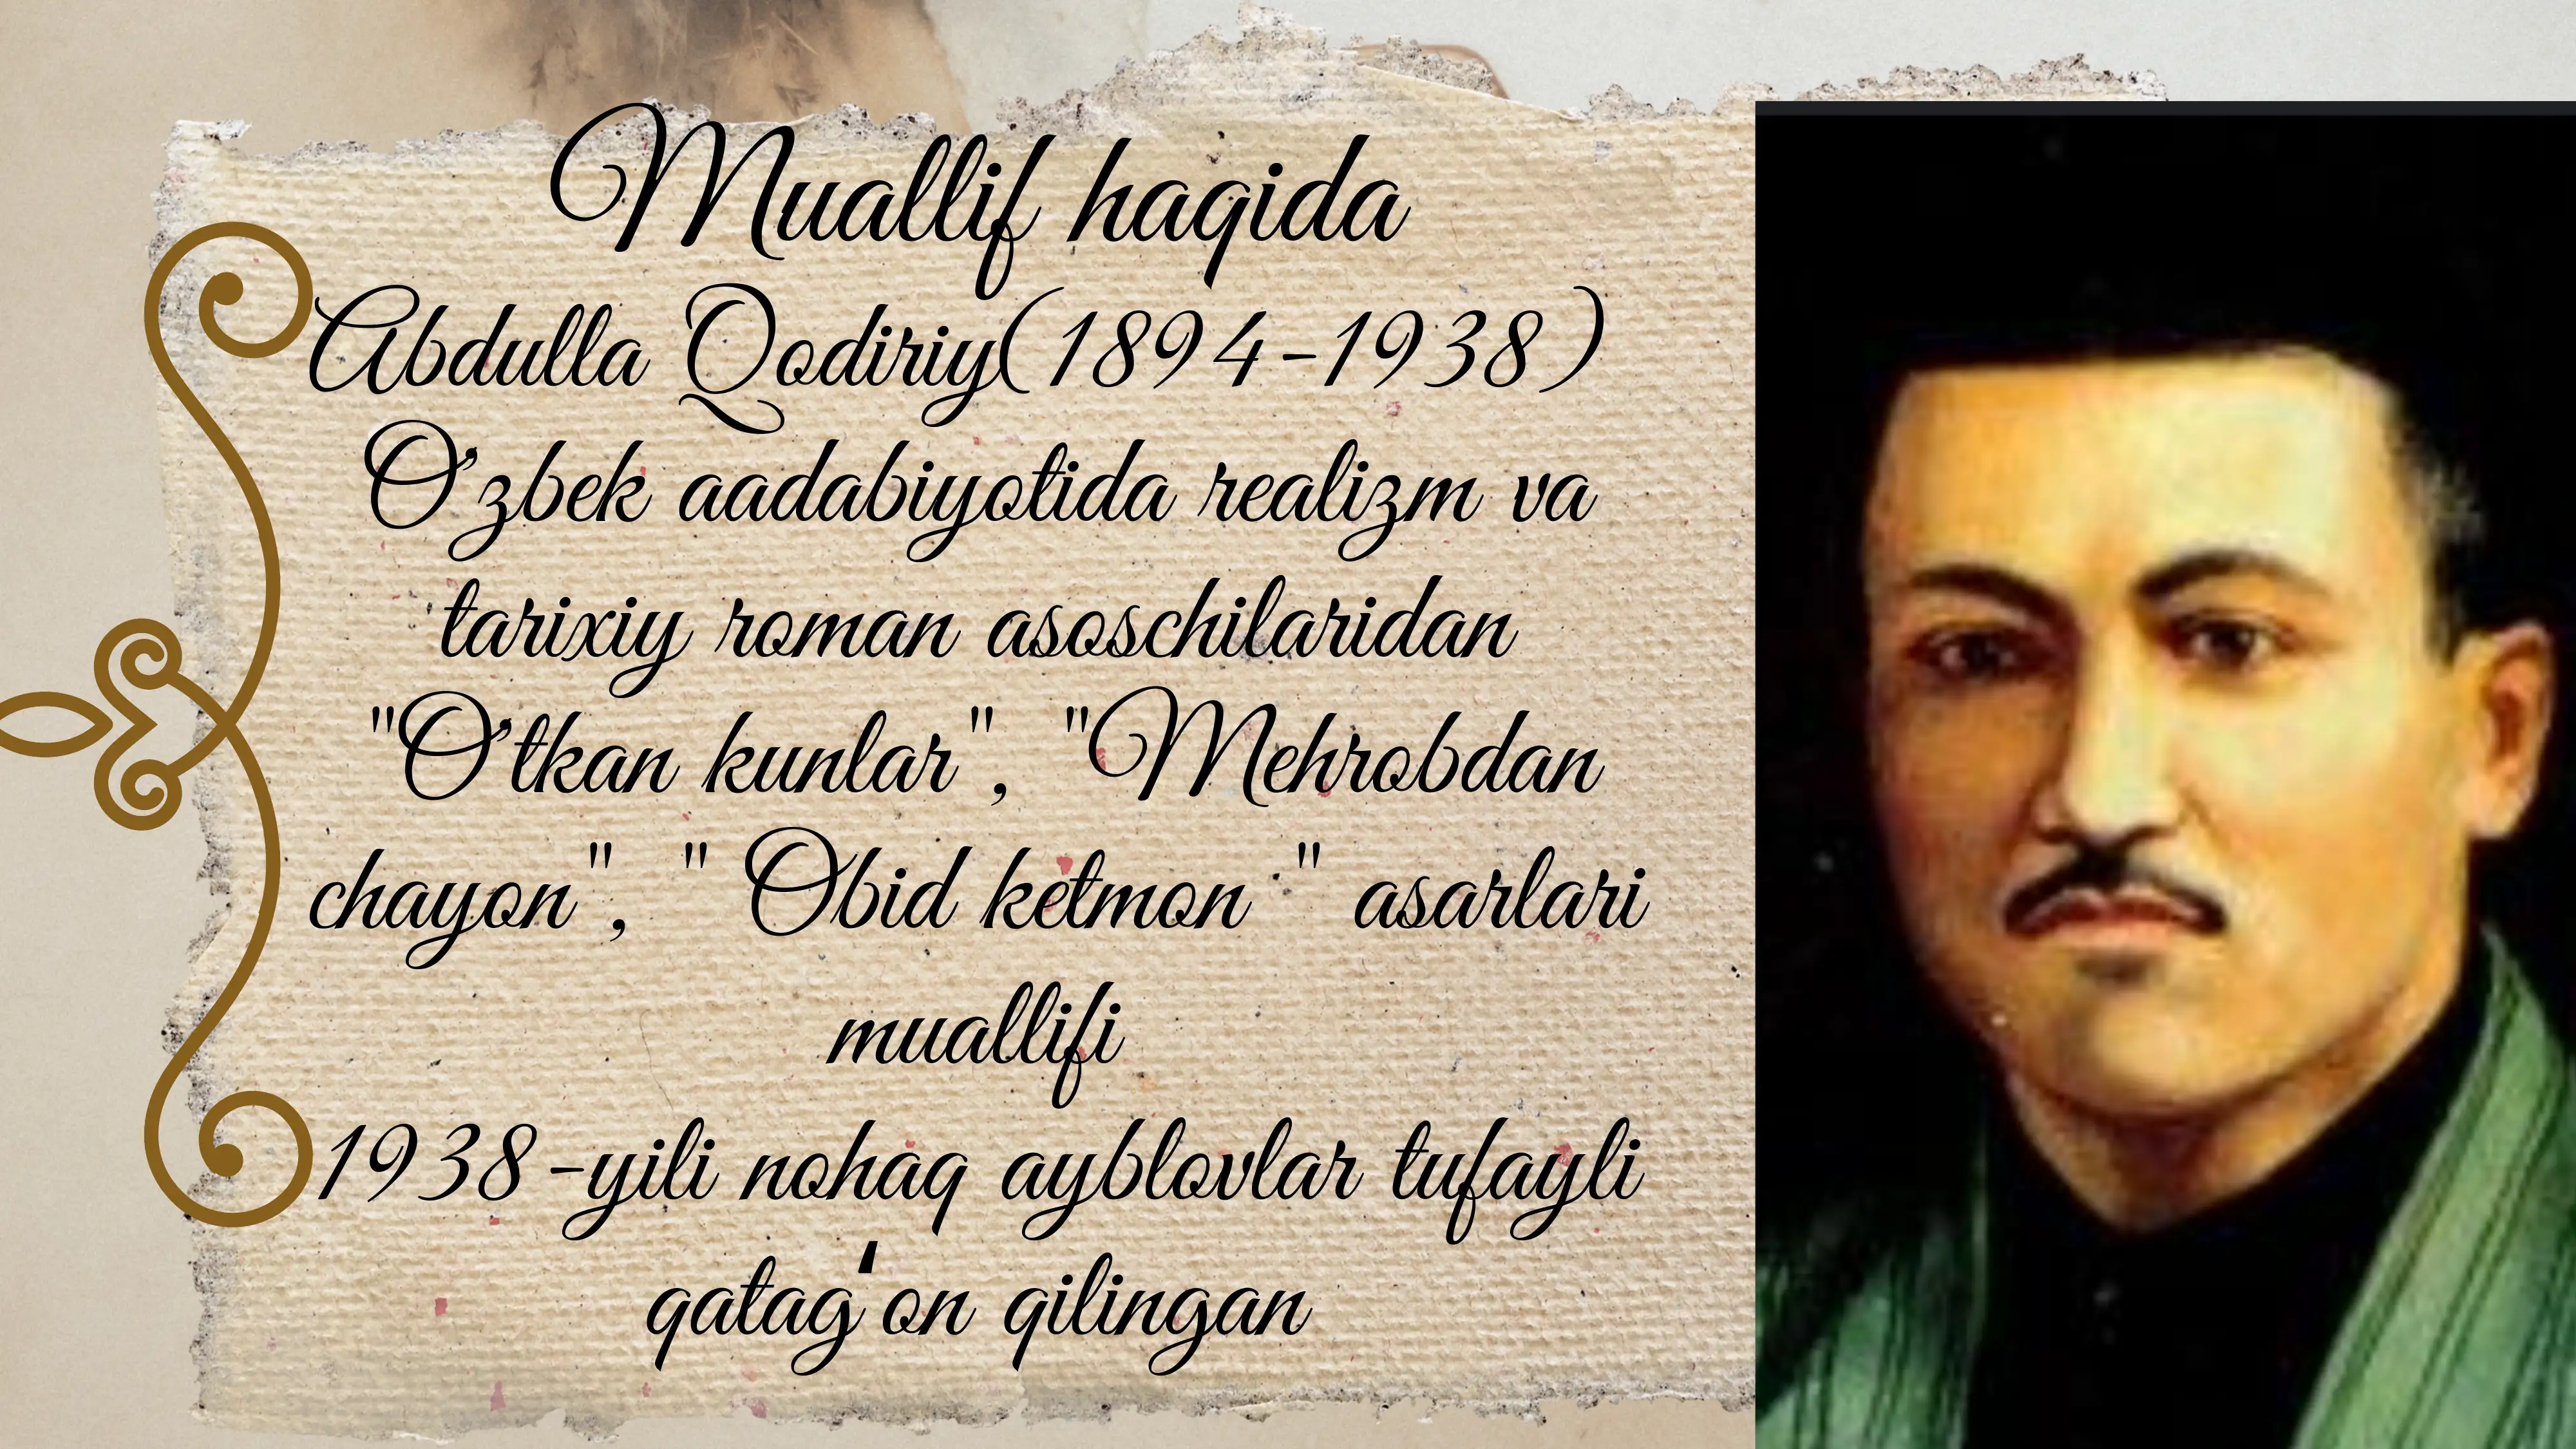 Muallif haqida
Abdulla Qodiriy(1894-1938)
O'zbek aadabiyotida realizm va
tarixiy roman asoschilaridan
"O'tkan kunlar", "Mehrobdan
chayon", " Obid ketmon " asarlari
muallifi
1938-yili nohaq ayblovlar tufayli
qatag'on qilingan